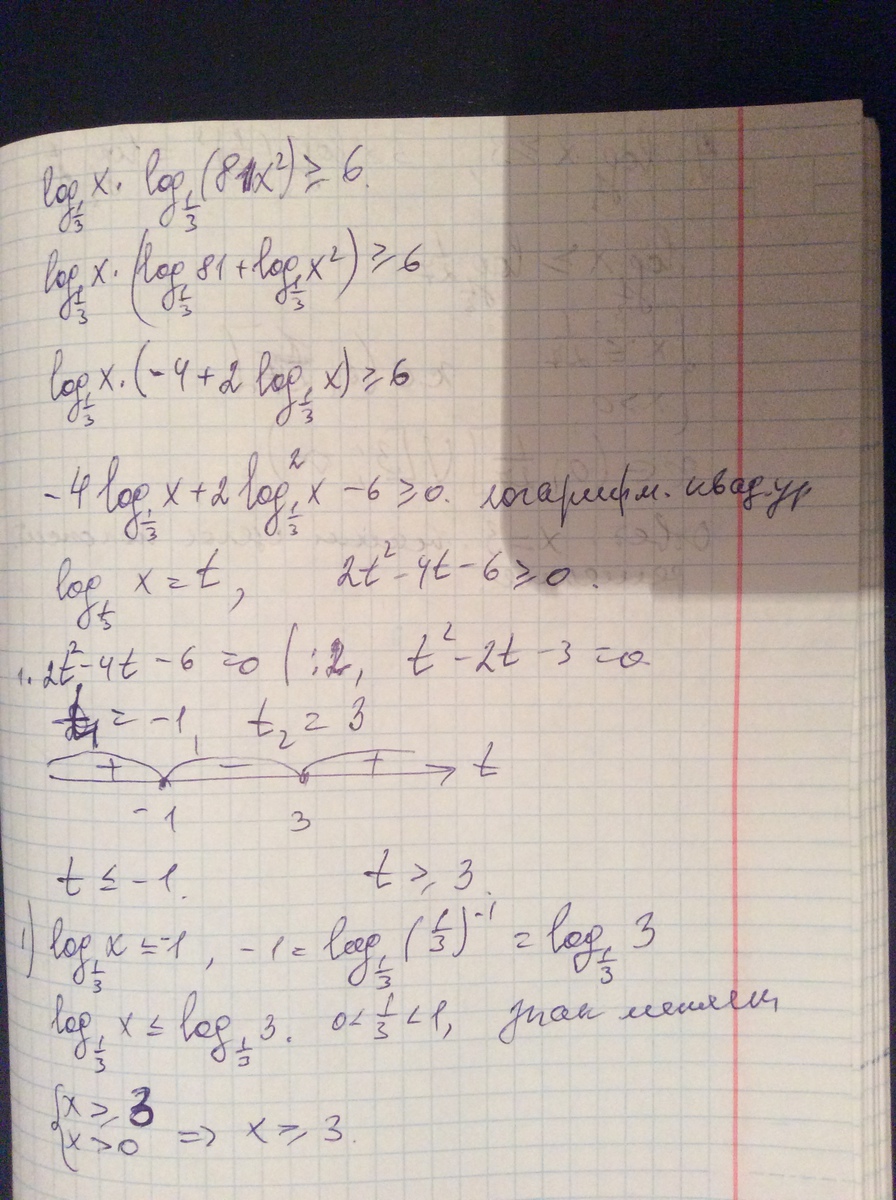 log_{1/3} x · log_{1/3} (81x²) ≥ 6.
log_{1/3} x · (log_{1/3} 81 + log_{1/3} x²) ≥ 6
log_{1/3} x · (-4 + 2 log_{1/3} x) ≥ 6
-4 log_{1/3} x + 2 log²_{1/3} x - 6 ≥ 0. логарифм. квад. ур
log_{1/3} x = t, 2t² - 4t - 6 ≥ 0.
1. 2t² - 4t - 6 = 0 (:2, t² - 2t - 3 = 0
t₁ = -1, t₂ = 3
+ - + t
-1 3
t ≤ -1. t ≥ 3.
1) log_{1/3} x ≤ -1, -1 = log_{1/3} (1/3)⁻¹ = log_{1/3} 3
log_{1/3} x ≤ log_{1/3} 3. 0 < 1/3 < 1, знак меняем
{x ≥ 3
x > 0 ⇒ x ≥ 3.